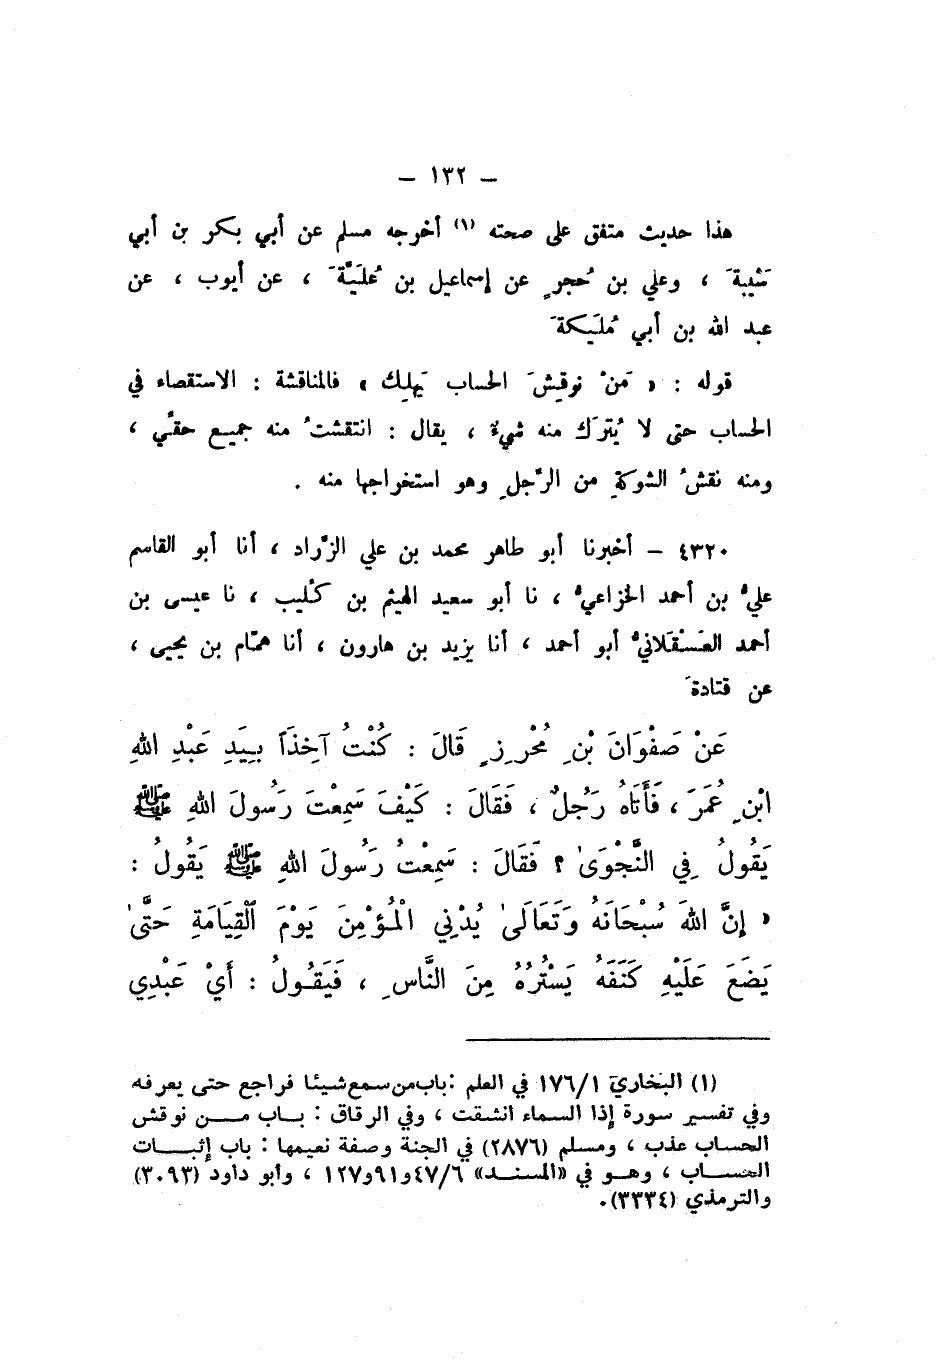 – ١٣٢ –
هذا حديث متفق على صحته (١) أخرجه مسلم عن أبي بكر بن أبي
شَيْبَةَ ، وعلي بن حُجرٍ عن إسماعيل بن عُلَيَّةَ ، عن أيوب ، عن
عبد الله بن أبي مُلَيكةَ
قوله : « مَنْ نوقِشَ الحساب يَهلِك » فالمناقشة : الاستقصاء في
الحساب حتى لا يُترَك منه شيءٌ ، يقال : انتقشتُ منه جميع حقيّ ،
ومنه نقشُ الشوكةِ من الرِّجلِ وهو استخراجها منه .
٤٣٢٠ – أخبرنا أبو طاهر محمد بن علي الزَّراد ، أنا أبو القاسم
عليُّ بن أحمد الخزاعيُّ ، نا أبو سعيد الهيثم بن كُليب ، نا عيسى بن
أحمد العَسْقَلانيُّ أبو أحمد ، أنا يزيد بن هارون ، أنا همَّام بن يحيى ،
عن قتادةَ
عَنْ صَفْوَانَ بْنِ مُحْرِزٍ قَالَ : كُنْتُ آخِذَاً بِيَدِ عَبْدِ اللهِ
ابْنِ عُمَرَ ، فَأَتَاهُ رَجُلٌ ، فَقَالَ : كَيْفَ سَمِعْتَ رَسُولَ اللهِ ﷺ
يَقُولُ فِي النَّجْوَىٰ ؟ فَقَالَ : سَمِعْتُ رَسُولَ اللهِ ﷺ يَقُولُ :
« إِنَّ اللهَ سُبْحَانَهُ وَتَعَالَىٰ يُدْنِي الْمُؤْمِنَ يَوْمَ الْقِيَامَةِ حَتَّىٰ
يَضَعَ عَلَيْهِ كَنَفَهُ يَسْتُرُهُ مِنَ النَّاسِ ، فَيَقُولُ : أَيْ عَبْدِي
(١) البخاري ١٧٦/١ في العلم : باب من سمع شيئا فراجع حتى يعرفه
وفي تفسير سورة إذا السماء انشقت ، وفي الرقاق : باب من نوقش
الحساب عذب ، ومسلم (٢٨٧٦) في الجنة وصفة نعيمها : باب إثبات
الحساب ، وهو في «المسند» ٤٧/٦ و٩١ و١٢٧ ، وأبو داود (٣٠٩٣)
والترمذي (٣٣٣٤).